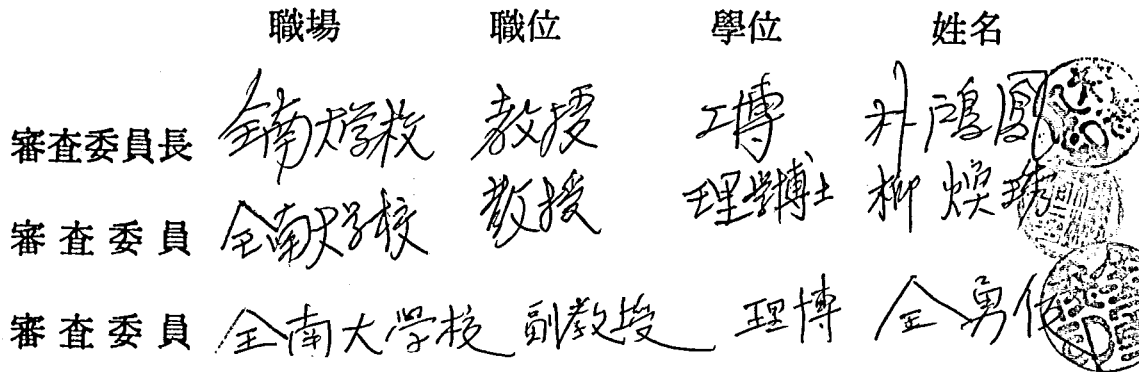 職場 職位 學位 姓名
審査委員長 全南大学校 教授 工博 朴鴻鳳
審査委員 全南大学校 教授 理學博士 柳煥
審査委員 全南大学校 副教授 理博 金勇